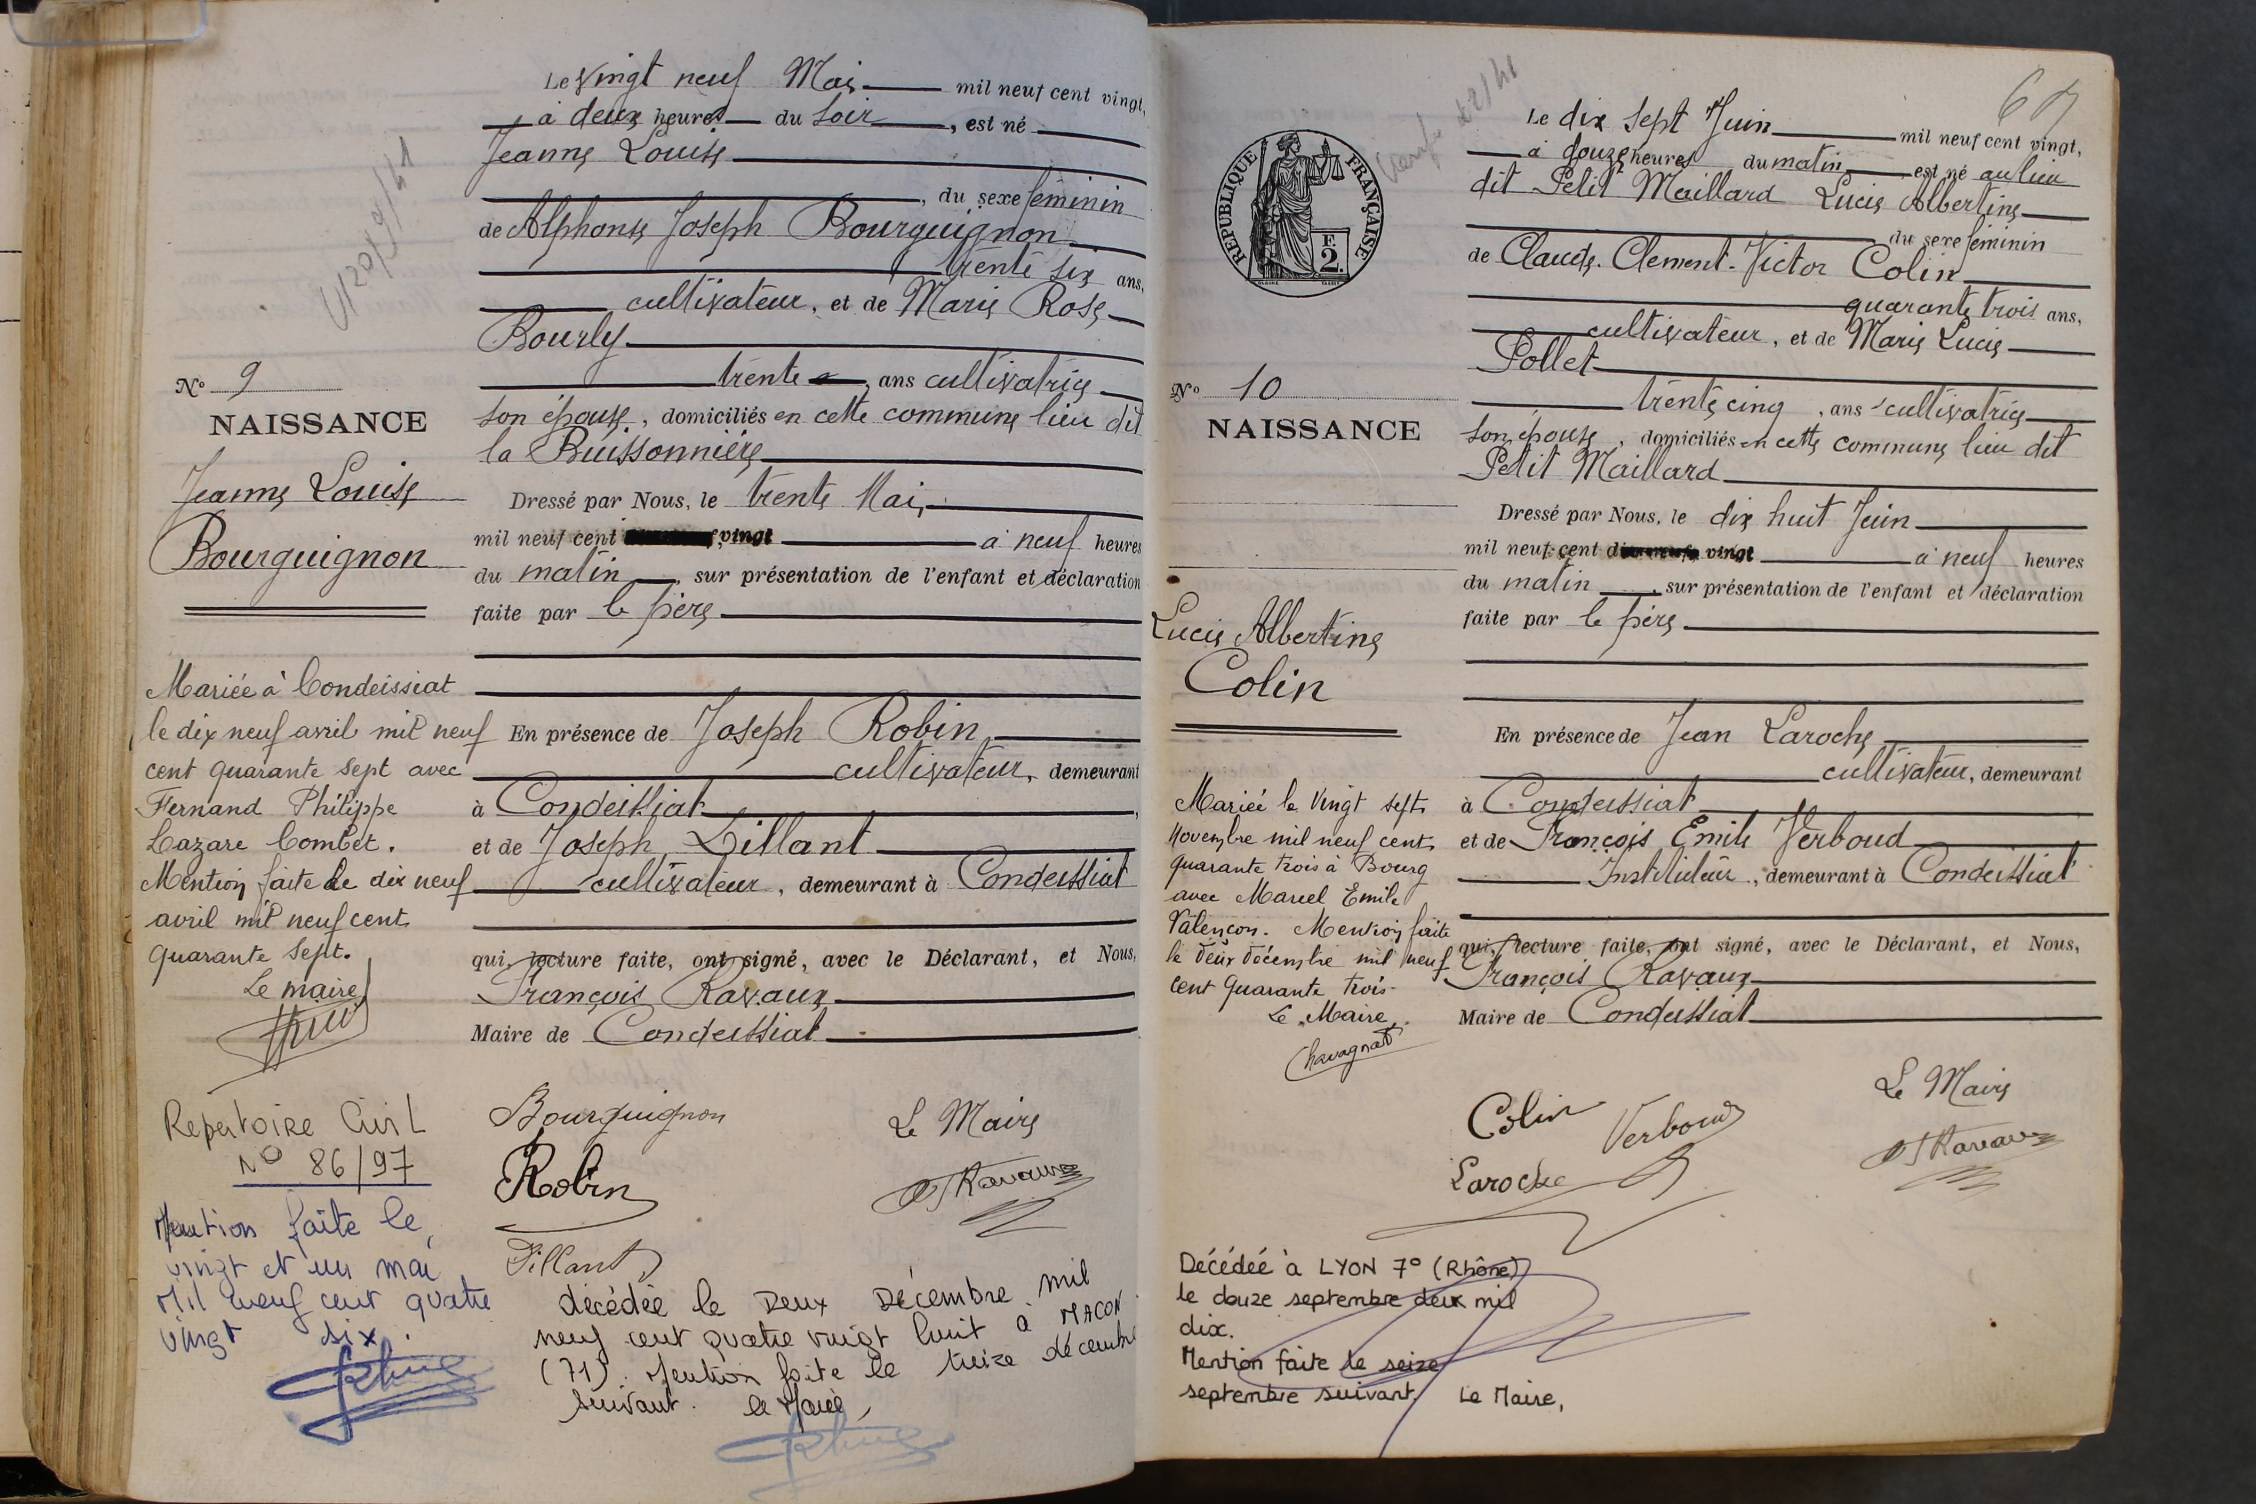 Le Vingt neuf Mai mil neuf cent vingt,
à deux heures du soir, est né
Jeanne Louise
, du sexe féminin
de Alphonse Joseph Bourguignon
trente six ans,
cultivateur, et de Marie Rose
Bourly
trente, ans cultivatrice
son épouse, domiciliés en cette commune lieu dit
la Buissonnière
Dressé par Nous, le trente Mai,
mil neuf cent vingt à neuf heures
du matin, sur présentation de l'enfant et déclaration
faite par le père
En présence de Joseph Robin,
cultivateur, demeurant
à Condeissiat,
et de Joseph Tillant
cultivateur, demeurant à Condeissiat
qui, lecture faite, ont signé, avec le Déclarant, et Nous,
François Ravaux
Maire de Condeissiat
Bourguignon
Le Maire
Robin
Ravaux
Tillant
décédée le Deux Décembre mil
neuf cent quatre vingt huit à MACON
(71). Mention faite le treize décembre
suivant. le Maire,
N° 9
NAISSANCE
Jeanne Louise
Bourguignon
Mariée à Condeissiat
le dix neuf avril mil neuf
cent quarante sept avec
Fernand Philippe
Lazare Combet.
Mention faite le dix neuf
avril mil neuf cent
quarante sept.
Le maire
Répertoire Civil
N° 86/97
Mention faite le
vingt et un mai
mil neuf cent quatre
vingt six.
Le dix sept Juin mil neuf cent vingt,
à douze heures du matin est né au lieu
dit Petit Maillard Lucie Albertine
du sexe féminin
de Claude-Clement-Victor Colin
quarante trois ans,
cultivateur, et de Marie Lucie
Pollet
trente cinq, ans cultivatrice
son épouse, domiciliés en cette commune lieu dit
Petit Maillard
Dressé par Nous, le dix huit Juin
mil neuf cent vingt à neuf heures
du matin, sur présentation de l'enfant et déclaration
faite par le père
En présence de Jean Laroche
cultivateur, demeurant
à Condeissiat
et de François Emile Verboud
Instituteur, demeurant à Condeissiat
qui, lecture faite, ont signé, avec le Déclarant, et Nous,
François Ravaux
Maire de Condeissiat
Le Maire
Colin Verboud
Ravaux
Laroche
Décédée à LYON 7° (Rhône)
le douze septembre deux mil
dix.
Mention faite le seize
septembre suivant. Le Maire,
RÉPUBLIQUE FRANÇAISE
F.
2.
N° 10
NAISSANCE
Lucie Albertine
Colin
Mariée le Vingt sept
novembre mil neuf cent
quarante trois à Bourg
avec Marcel Emile
Valençon. Mention faite
le deux décembre mil neuf
cent quarante trois.
Le Maire,
Chavagnat